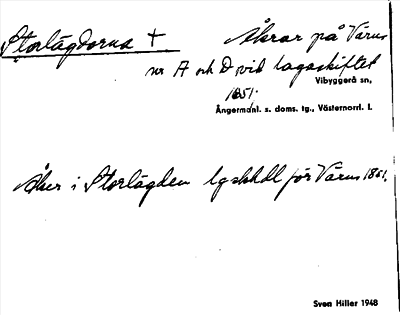 Storlägdorna +
Åkrar på Värns
nr A och D vid lagaskiftet
Vibyggerå sn,
1851.
Ångermanl. s. doms. tg., Västernorrl. l.
Åker i Storlägden lgskhdl för Värns 1851.
Sven Hiller 1948